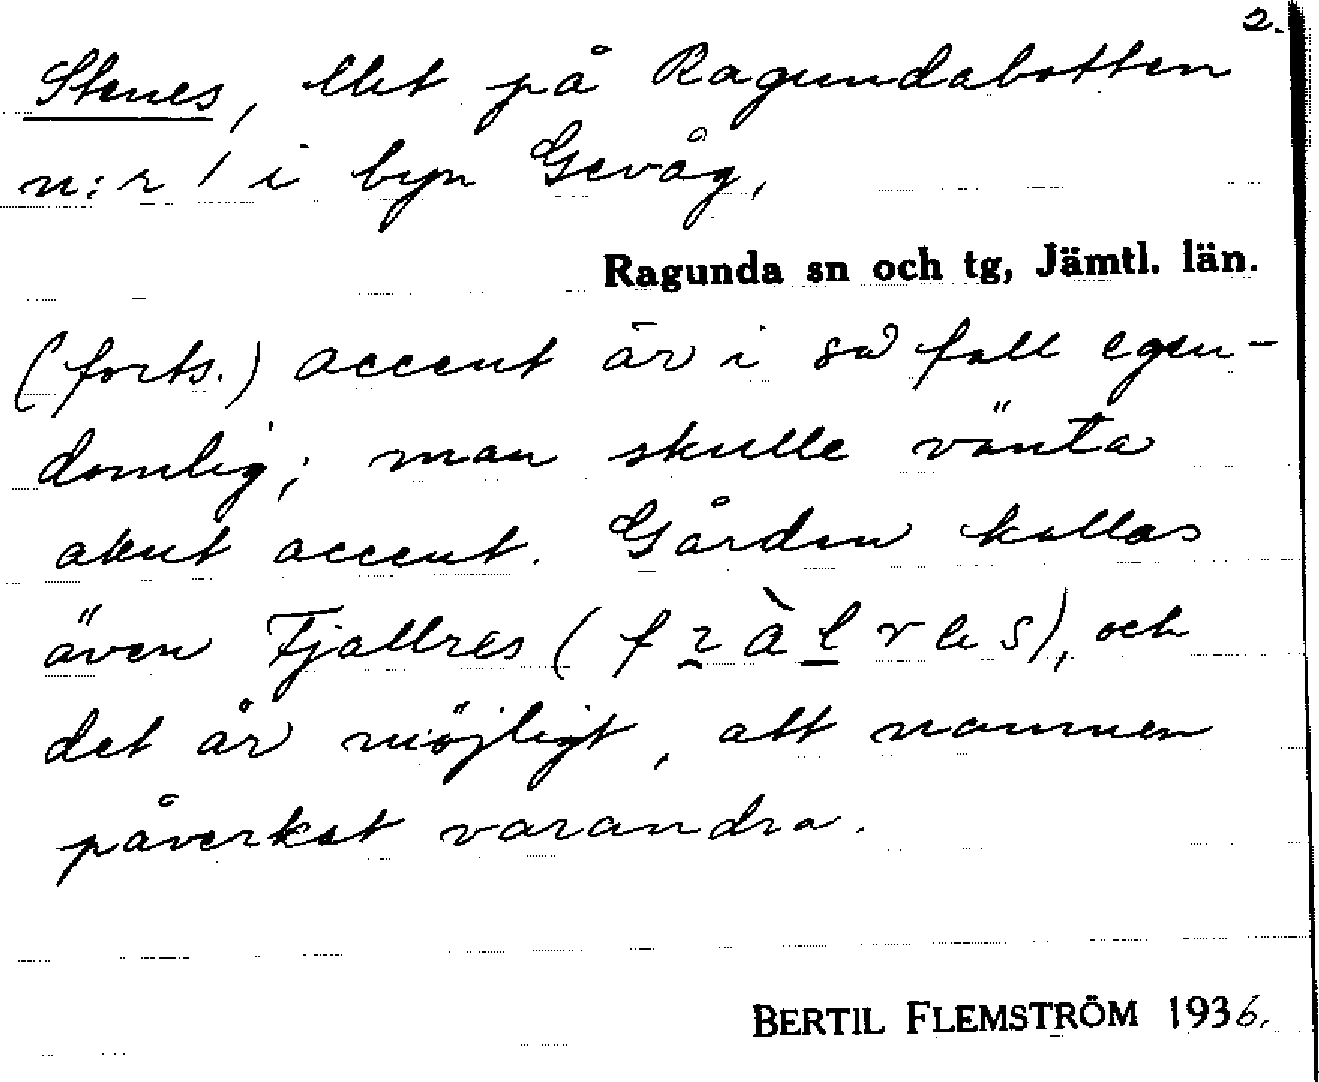 2.
Stenes, llht på Ragundabotten
n:r 1 i byn Gevåg,
Ragunda sn och tg, Jämtl. län.
(forts.) accent är i så fall egen-
domlig; man skulle vänta
akut accent. Gården kallas
även Fjallres (), och
det är möjligt, att namnen
påverkat varandra.
BERTIL FLEMSTRÖM 1936.